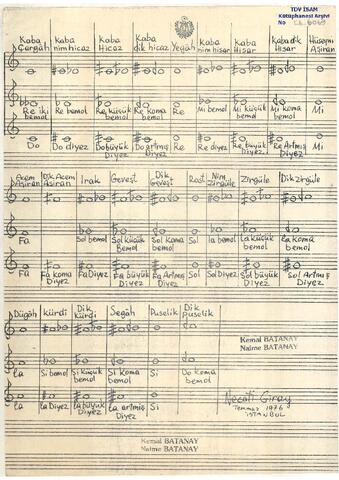 TDV İSAM
Kütüphanesi Arşivi
No
Kaba Çergâh Kaba nim hicaz Kaba Hicaz Kaba dik hicaz Yegâh Kaba nim hisar Kaba Hisar Kaba dik Hisar Hüseynî Aşiran
Re iki bemol Re bemol Re küçük bemol Re koma bemol Re Mi bemol Mi küçük bemol Mi koma bemol Mi
Do Do diyez Do büyük Diyez Do artmış Diyez Re Re diyez Re büyük Diyez Re Artmış Diyez Mi
Acem Aşiran Dik Acem Aşiran Irak Geveşt Dik Geveşt Rast Nim Zirgüle Zirgüle Dik zirgüle
Fa Sol bemol Sol küçük bemol Sol koma bemol Sol la bemol La küçük bemol La koma bemol
Fa Fa koma Diyez Fa Diyez Fa büyük Diyez Fa Artmış Diyez Sol Sol diyez Sol büyük Diyez Sol Artmış Diyez
Dügâh kürdi Dik kürdi Segâh Puselik Dik puselik
Kemal BATANAY
Naime BATANAY
la Si bemol Si küçük bemol Si koma bemol Si Do koma bemol
la la Diyez la büyük Diyez la artmış Diyez Si
Necati Giray
Temmuz 1976
İSTANBUL
Kemal BATANAY
Naime BATANAY